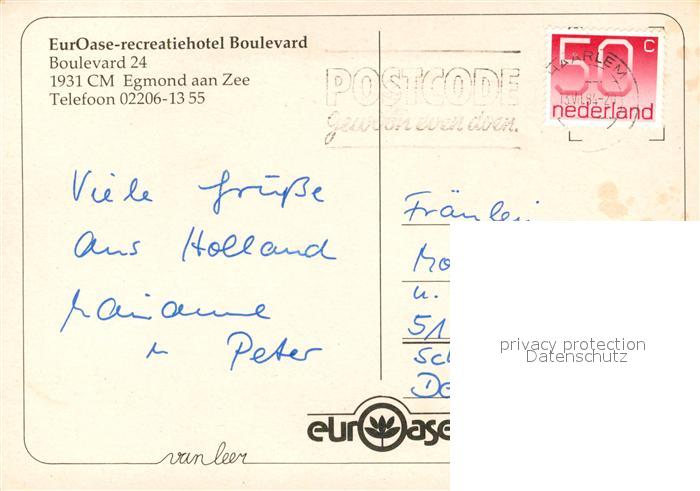 EurOase-recreatiehotel Boulevard
Boulevard 24
1931 CM Egmond aan Zee
Telefoon 02206-13 55
POSTCODE
gewoon even doen.
HAARLEM
50 c
nederland
Viele Grüße
aus Holland
Marianne
u Peter
Fräulein
Mo
u.
51
Sch
De
privacy protection
Datenschutz
eurOase
van leer